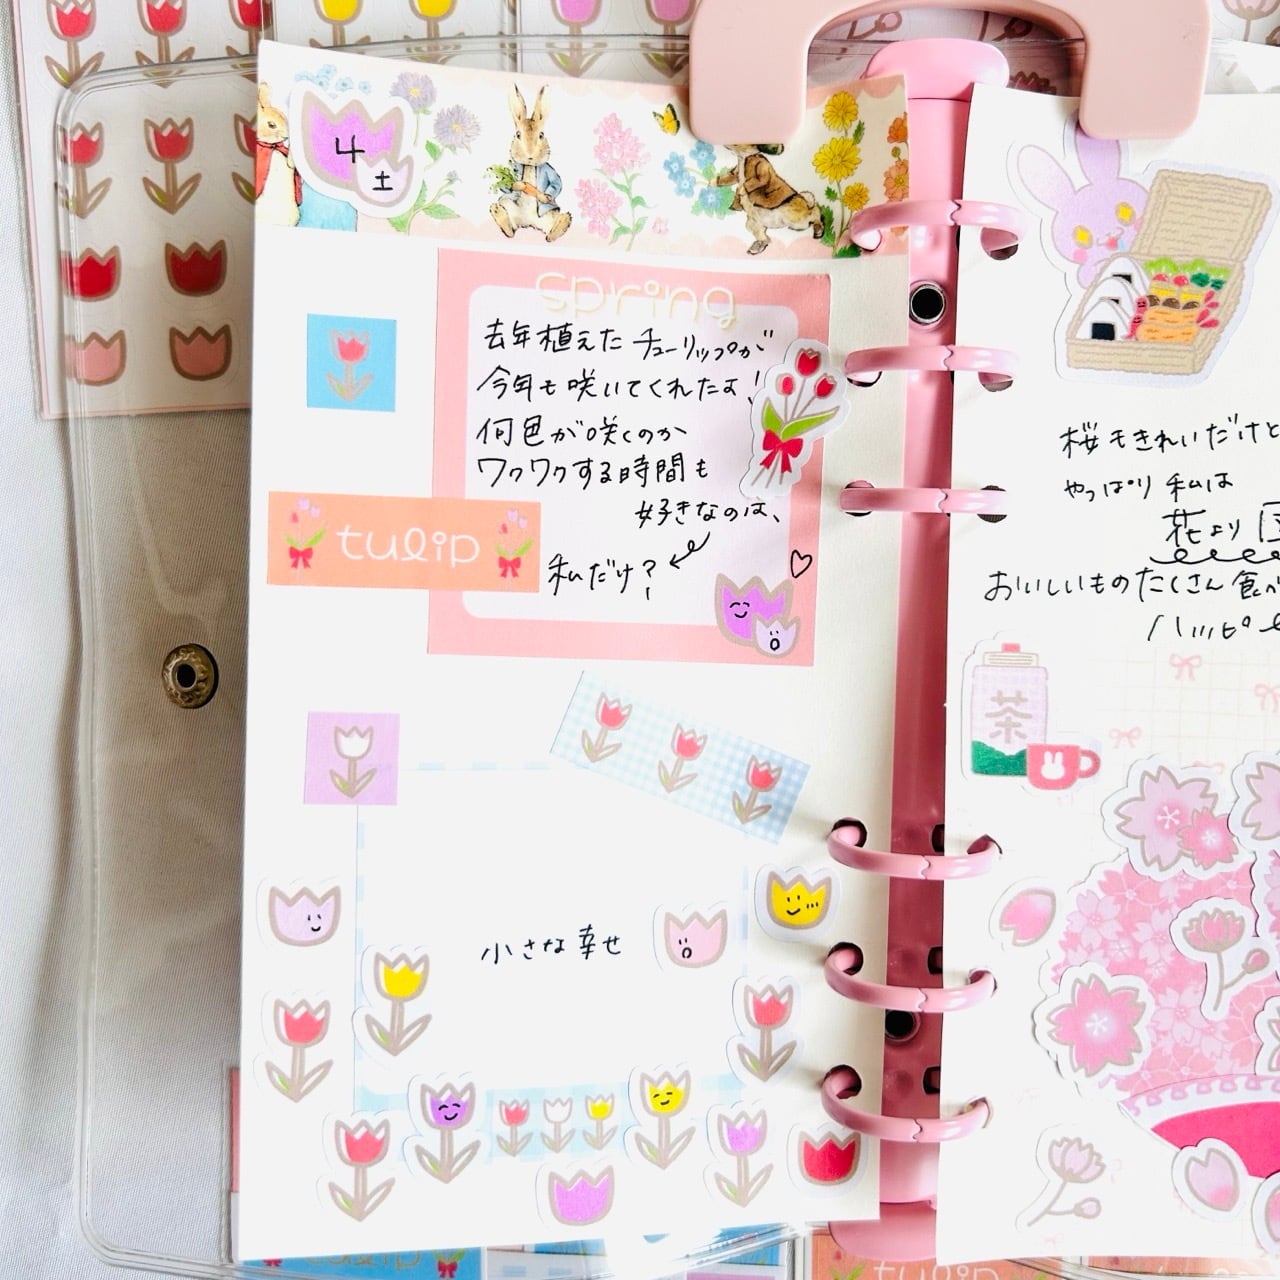 4
土
spring
去年植えたチューリップが
今年も咲いてくれたよ!
何色が咲くのか
ワクワクする時間も
好きなのは、
私だけ?
tulip
小さな幸せ
桜もきれいだけど
やっぱり私は
花より
おいしいものたくさん食べ
ハッピー
茶
tulip
tulip